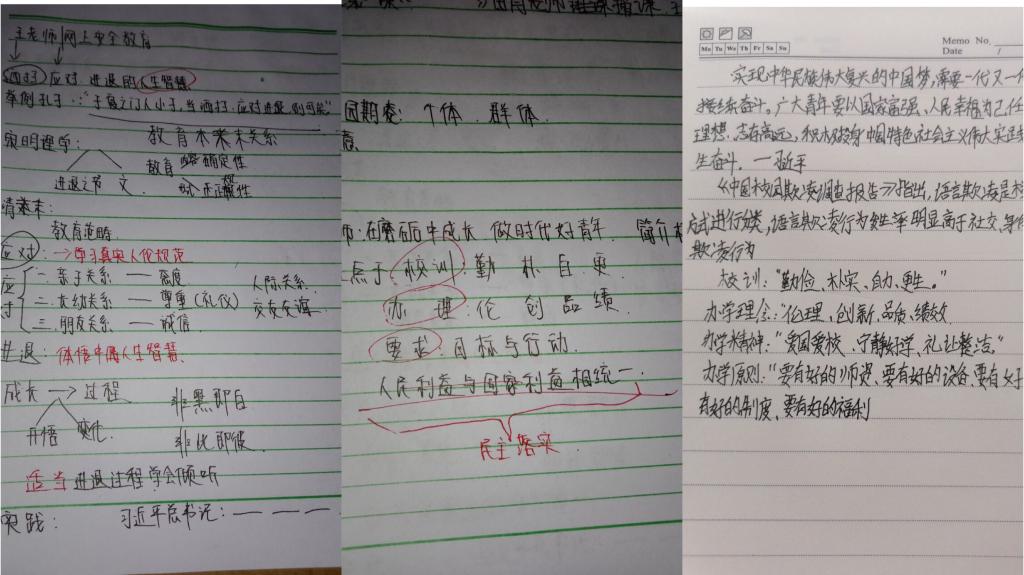 王老师|网上安全教育
洒扫 应对 进退的人生智慧
举例孔子:"子夏之门人小子,当洒扫、应对进退,则可矣"
宋明理学: 教育本来末关系
教育 确定性
进退之节 文 正确性
教育范畴
应对: →学习真实人伦规范
应对
一. 亲子关系 — 态度
二. 友幼关系 — 尊重(礼仪)
三. 朋友关系 — 诚信
人际关系
交友交谊
进退: 体悟中庸人生智慧
成长 → 过程 非黑即白
开悟 变化 非此即彼
适当进退过程学会倾听
实践: 习近平总书记: — — —
个体 群体
在磨砺中成长 做时代好青年. 简介
点于校训: 勤 朴 自 更
办 理: 伦 创 品 绩
要求: 目标与行动.
人民利益与国家利益相统一.
民主落实
Memo No.
Mo Tu We Th Fr Sa Su
Date /
实现中华民族伟大复兴的中国梦,需要一代又一
接续奋斗。广大青年要以国家富强、人民幸福为己任
理想、志存高远,积极投身中国特色社会主义伟大实
生奋斗。 —习近平
《中国校园欺凌调查报告》指出,语言欺凌是
式进行分类,语言欺凌行为发生率明显高于社交、身体
欺凌行为
校训:"勤俭、朴实、自力、更生。"
办学理念:"伦理、创新、品质、绩效
办学精神:"爱国爱校、宁静好学、礼让整洁。"
办学原则:"要有好的师资、要有好的设备、要有
有好的制度、要有好的福利